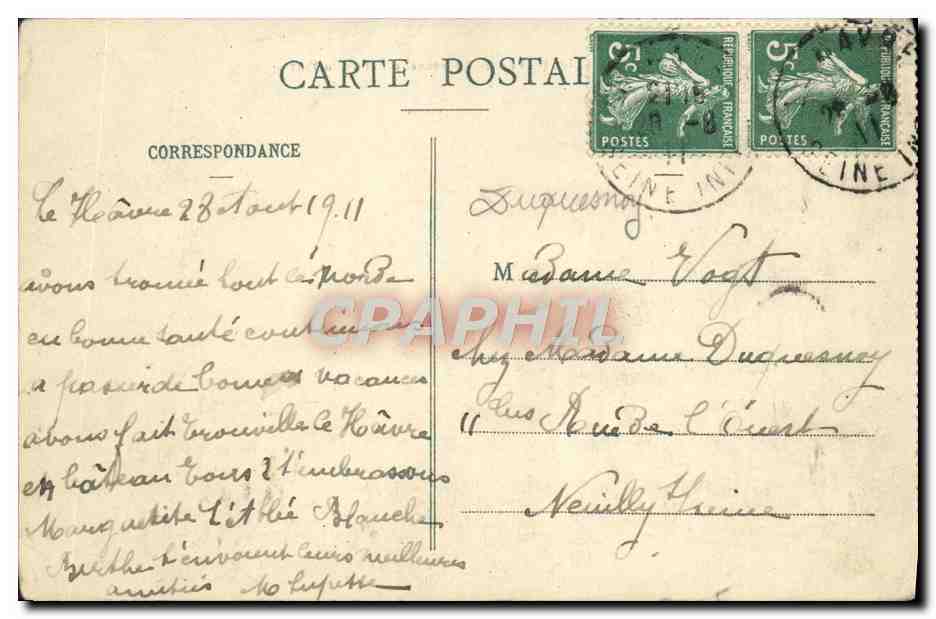 CARTE POSTAL
CORRESPONDANCE
5c
REPUBLIQUE FRANÇAISE
POSTES
5c
REPUBLIQUE FRANÇAISE
POSTES
SEINE INF
HAVRE
SEINE INF
Le Hâvre 28 Aout 1911
avons trouvé tout le Monde
en bonne santé continuons
a passer de bonnes vacances
avons fait Trouville le Hâvre
en bâteau tous 2 t'embrassons
Marguerite l'Abbé Blanche
Berthe t'envoient leurs meilleures
amitiés M
Duquesnoy
Madame Vogt
chez Madame Duquesnoy
11 bis Rue De l'Ouest
Neuilly s/ Seine
CPAPHIL